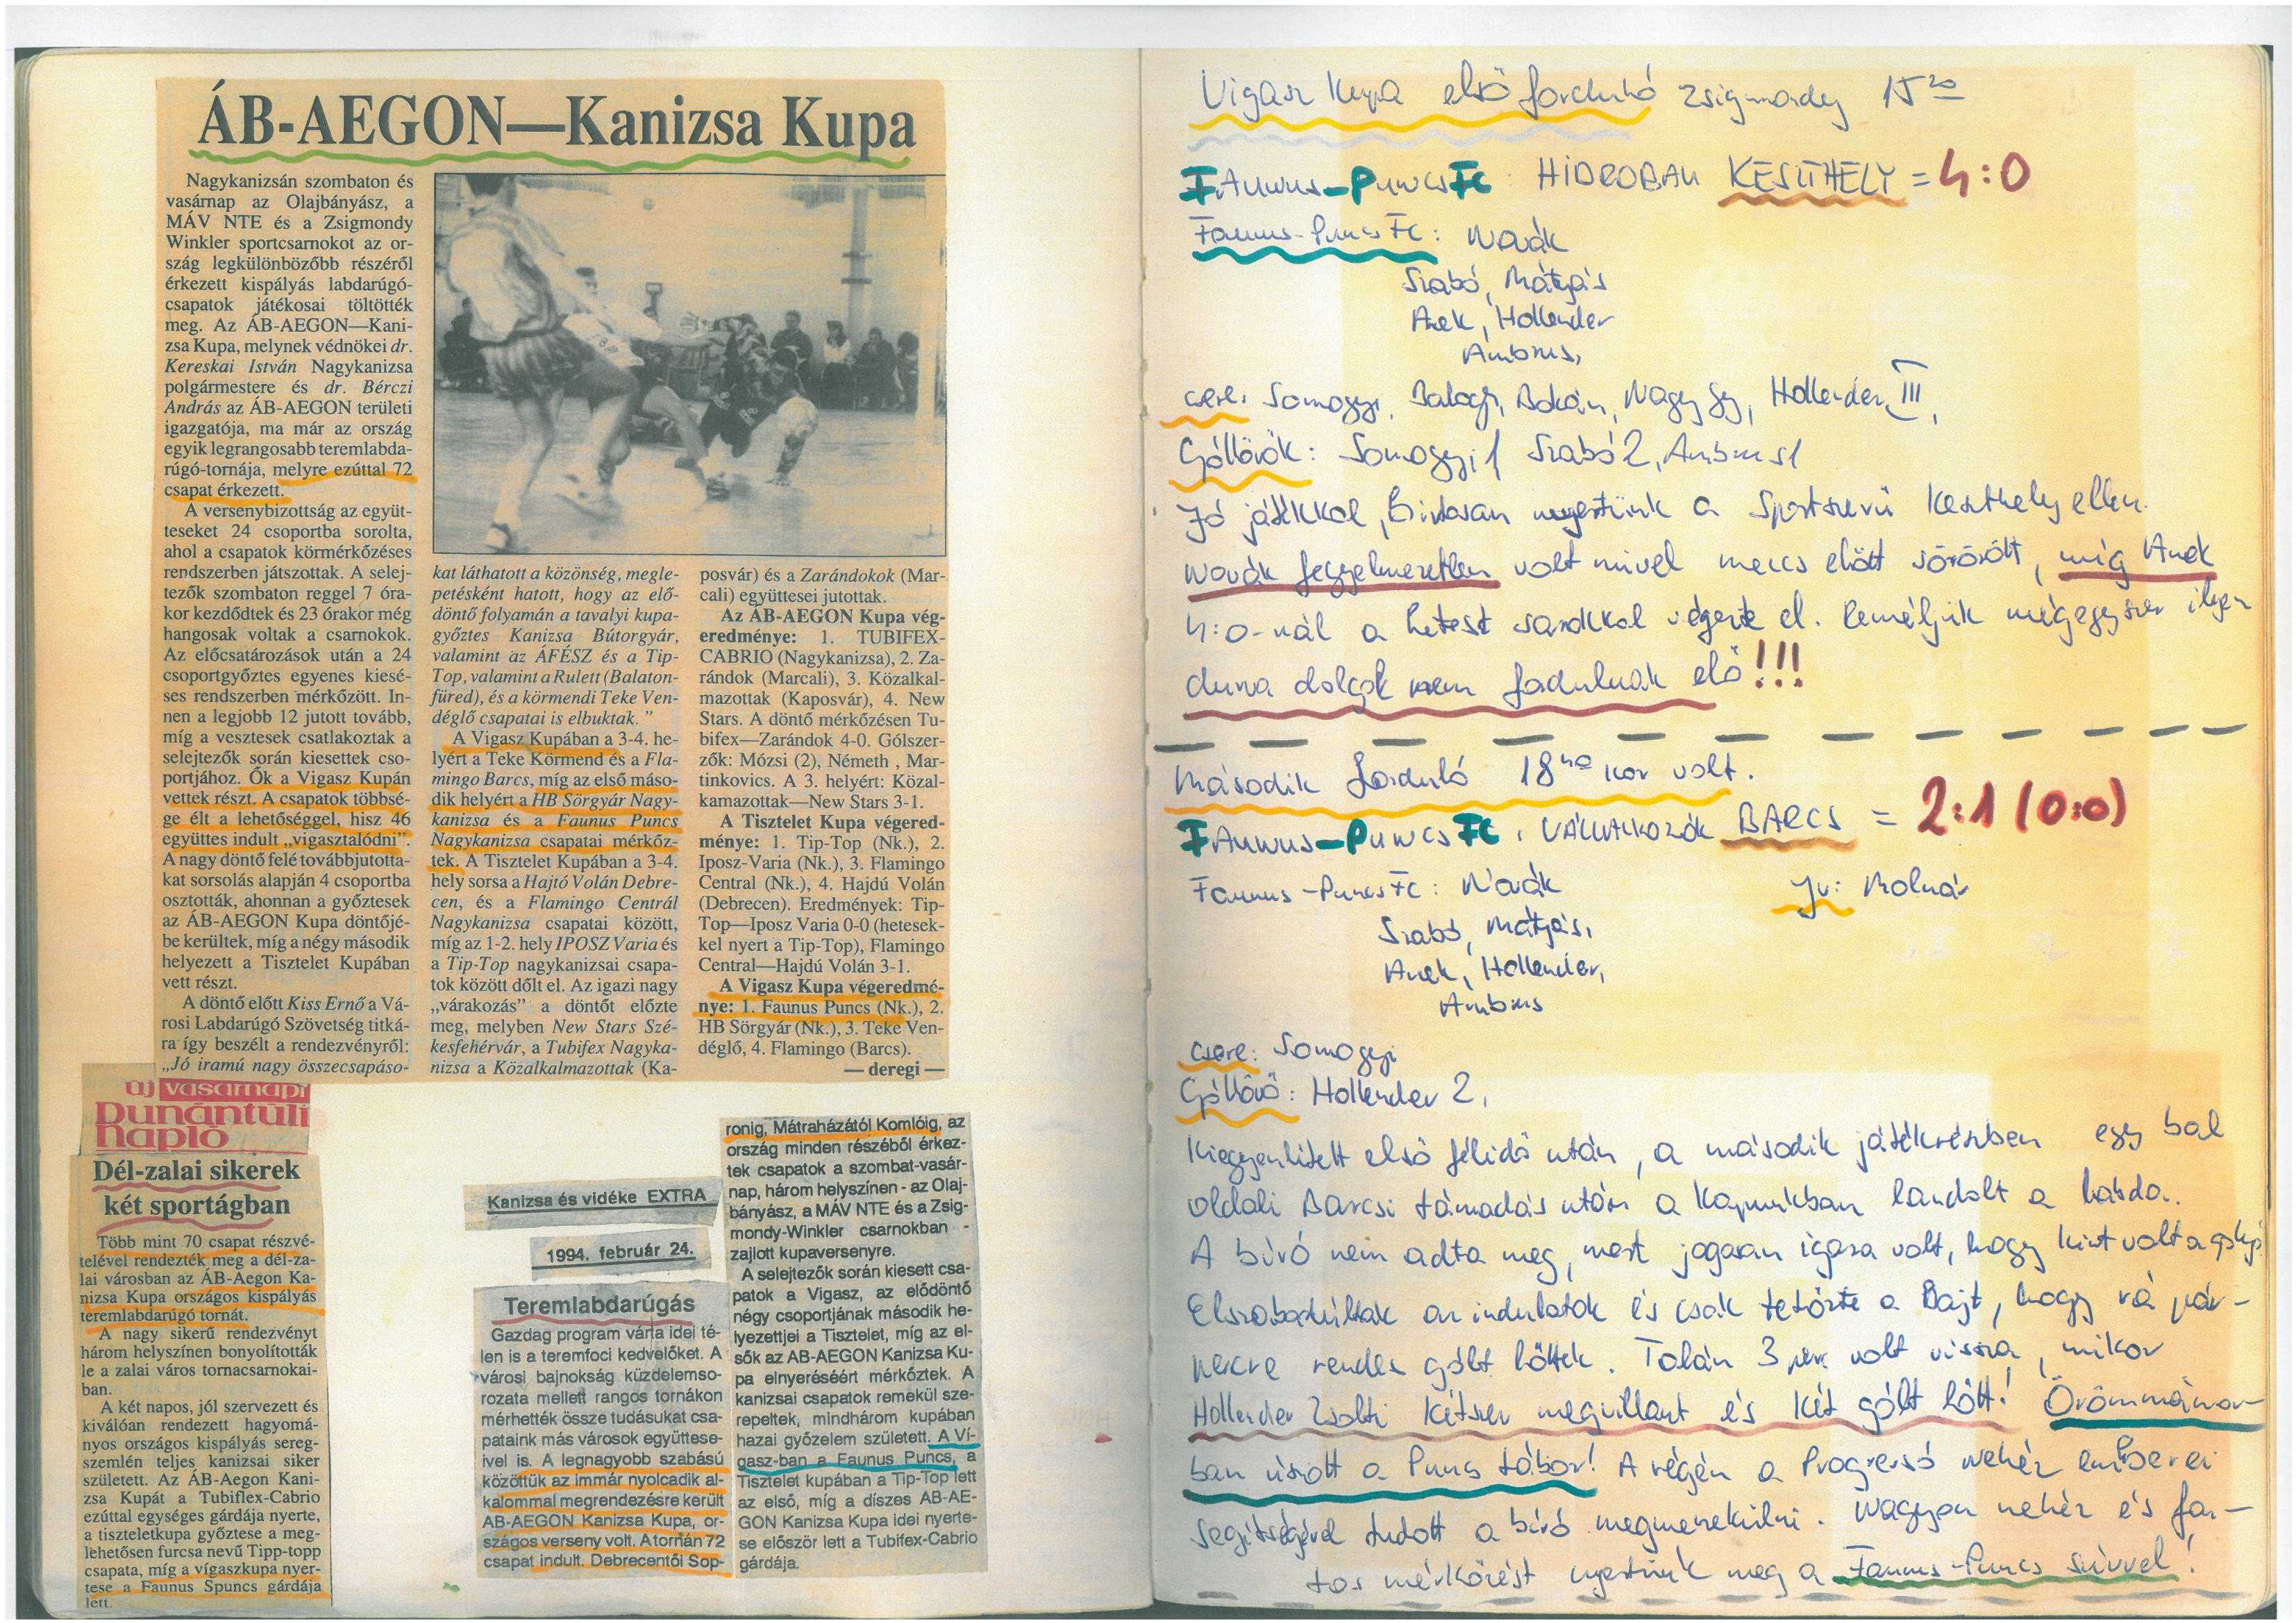 ÁB-AEGON—Kanizsa Kupa
Nagykanizsán szombaton és
vasárnap az Olajbányász, a
MÁV NTE és a Zsigmondy
Winkler sportcsarnokot az or-
szág legkülönbözőbb részéről
érkezett kispályás labdarúgó-
csapatok játékosai töltötték
meg. Az ÁB-AEGON—Kani-
zsa Kupa, melynek védnökei dr.
Kereskai István Nagykanizsa
polgármestere és dr. Bérczi
András az ÁB-AEGON területi
igazgatója, ma már az ország
egyik legrangosabb teremlabda-
rúgó-tornája, melyre ezúttal 72
csapat érkezett.
A versenybizottság az együt-
teseket 24 csoportba sorolta,
ahol a csapatok körmérkőzéses
rendszerben játszottak. A selej-
tezők szombaton reggel 7 óra-
kor kezdődtek és 23 órakor még
hangosak voltak a csarnokok.
Az előcsatározások után a 24
csoportgyőztes egyenes kiesé-
ses rendszerben mérkőzött. In-
nen a legjobb 12 jutott tovább,
míg a vesztesek csatlakoztak a
selejtezők során kiesettek cso-
portjához. Ők a Vigasz Kupán
vettek részt. A csapatok többsé-
ge élt a lehetőséggel, hisz 46
együttes indult „vigasztalódni”.
A nagy döntő felé továbbjutotta-
kat sorsolás alapján 4 csoportba
osztották, ahonnan a győztesek
az ÁB-AEGON Kupa döntőjé-
be kerültek, míg a négy második
helyezett a Tisztelet Kupában
vett részt.
A döntő előtt Kiss Ernő a Vá-
rosi Labdarúgó Szövetség titká-
ra így beszélt a rendezvényről:
„Jó iramú nagy összecsapáso-
kat láthatott a közönség, megle-
petésként hatott, hogy az elő-
döntő folyamán a tavalyi kupa-
győztes Kanizsa Bútorgyár,
valamint az ÁFÉSZ és a Tip-
Top, valamint a Rulett (Balaton-
füred), és a körmendi Teke Ven-
déglő csapatai is elbuktak. ”
A Vigasz Kupában a 3-4. he-
lyért a Teke Körmend és a Fla-
mingo Barcs, míg az első máso-
dik helyért a HB Sörgyár Nagy-
kanizsa és a Faunus Puncs
Nagykanizsa csapatai mérkőz-
tek. A Tisztelet Kupában a 3-4.
hely sorsa a Hajtó Volán Debre-
cen, és a Flamingo Centrál
Nagykanizsa csapatai között,
míg az 1-2. hely IPOSZ Varia és
a Tip-Top nagykanizsai csapa-
tok között dőlt el. Az igazi nagy
„várakozás” a döntőt előzte
meg, melyben New Stars Szé-
kesfehérvár, a Tubifex Nagyka-
nizsa a Közalkalmazottak (Ka-
posvár) és a Zarándokok (Mar-
cali) együttesei jutottak.
Az ÁB-AEGON Kupa vég-
eredménye: 1. TUBIFEX-
CABRIO (Nagykanizsa), 2. Za-
rándok (Marcali), 3. Közalkal-
mazottak (Kaposvár), 4. New
Stars. A döntő mérkőzésen Tu-
bifex—Zarándok 4-0. Gólszer-
zők: Mózsi (2), Németh , Mar-
tinkovics. A 3. helyért: Közal-
kamazottak—New Stars 3-1.
A Tisztelet Kupa végered-
ménye: 1. Tip-Top (Nk.), 2.
Iposz-Varia (Nk.), 3. Flamingo
Central (Nk.), 4. Hajdú Volán
(Debrecen). Eredmények: Tip-
Top—Iposz Varia 0-0 (hetesek-
kel nyert a Tip-Top), Flamingo
Central—Hajdú Volán 3-1.
A Vigasz Kupa végeredmé-
nye: 1. Faunus Puncs (Nk.), 2.
HB Sörgyár (Nk.), 3. Teke Ven-
déglő, 4. Flamingo (Barcs).
— deregi —
új vasárnapi
Dunántúli
Napló
Dél-zalai sikerek
két sportágban
Több mint 70 csapat részvé-
telével rendezték meg a dél-za-
lai városban az ÁB-Aegon Ka-
nizsa Kupa országos kispályás
teremlabdarúgó tornát.
A nagy sikerű rendezvényt
három helyszínen bonyolították
le a zalai város tornacsarnokai-
ban.
A két napos, jól szervezett és
kiválóan rendezett hagyomá-
nyos országos kispályás sereg-
szemlén teljes kanizsai siker
született. Az ÁB-Aegon Kani-
zsa Kupát a Tubiflex-Cabrio
ezúttal egységes gárdája nyerte,
a tiszteletkupa győztese a meg-
lehetősen furcsa nevű Tipp-topp
csapata, míg a vígaszkupa nyer-
tese a Faunus Spuncs gárdája
lett.
Kanizsa és vidéke EXTRA
1994. február 24.
Teremlabdarúgás
Gazdag program várta idei té-
len is a teremfoci kedvelőket. A
városi bajnokság küzdelemso-
rozata mellett rangos tornákon
mérhették össze tudásukat csa-
pataink más városok együttese-
ivel is. A legnagyobb szabású
közöttük az immár nyolcadik al-
kalommal megrendezésre került
AB-AEGON Kanizsa Kupa, or-
szágos verseny volt. A tornán 72
csapat indult. Debrecentől Sop-
ronig, Mátraházától Komlóig, az
ország minden részéből érkez-
tek csapatok a szombat-vasár-
nap, három helyszínen - az Olaj-
bányász, a MÁV NTE és a Zsig-
mondy-Winkler csarnokban -
zajlott kupaversenyre.
A selejtezők során kiesett csa-
patok a Vigasz, az elődöntő
négy csoportjának második he-
lyezettjei a Tisztelet, míg az el-
sők az AB-AEGON Kanizsa Ku-
pa elnyeréséért mérkőztek. A
kanizsai csapatok remekül sze-
repeltek, mindhárom kupában
hazai győzelem született. A Ví-
gasz-ban a Faunus Puncs, a
Tisztelet kupában a Tip-Top lett
az első, míg a díszes AB-AE-
GON Kanizsa Kupa idei nyerte-
se először lett a Tubifex-Cabrio
gárdája.
Vigasz Kupa első forduló Zsigmondy 15²⁰
FAunus-PuncsFC : HIDROBAU KESZTHELY = 4:0
Faunus-Puncs Fc: Novák
Szabó, Mátyás
Anek, Hollender
Ambrus,
csere: Somogyi, Balogh, Bokán, Nagy Gy, Hollender III,
Góllövők: Somogyi 1 Szabó 2, Ambrus 1
Jó játékkal, Biztosan nyertünk a Sportszerű Keszthely ellen.
Novák fegyelmezetlen volt mivel meccs előtt sörözött, míg Anek
4:0-nál a hetest sarokkal végezte el. Reméljük mégegyszer ilyen
durva dolgok nem fordulnak elő!!!
Második forduló 18⁴⁰ kor volt.
FAunus-PuncsFC : VÁLLALKOZÓK BARCS = 2:1 (0:0)
Faunus-Puncs Fc: Novák Jv: Molnár
Szabó, Mátyás,
Anek, Hollender,
Ambrus
csere: Somogyi
Góllövő: Hollender 2.
Kiegyenlített első félidő után, a második játékrészben egy bal
oldali Barcsi támadás után a kapunkban landolt a labda.
A biró nem adta meg, mert jogosan igaza volt, hogy kint volt a
Elszabadúltak az indulatok és csak tetőzte a Bajt, hogy rá pár-
percre rendes gólt lőttek. Talán 3 perc volt vissza, mikor
Hollender Zsolti kétszer megvillant és két gólt lőtt! Örömmámor-
ban úszott a Puncs tábor! A végén a Progressó nehéz emberei
segítségével tudott a biró megmenekülni. Nagyon nehéz és for-
tos mérkőzést nyertünk meg a Faunus-Puncs szívvel!